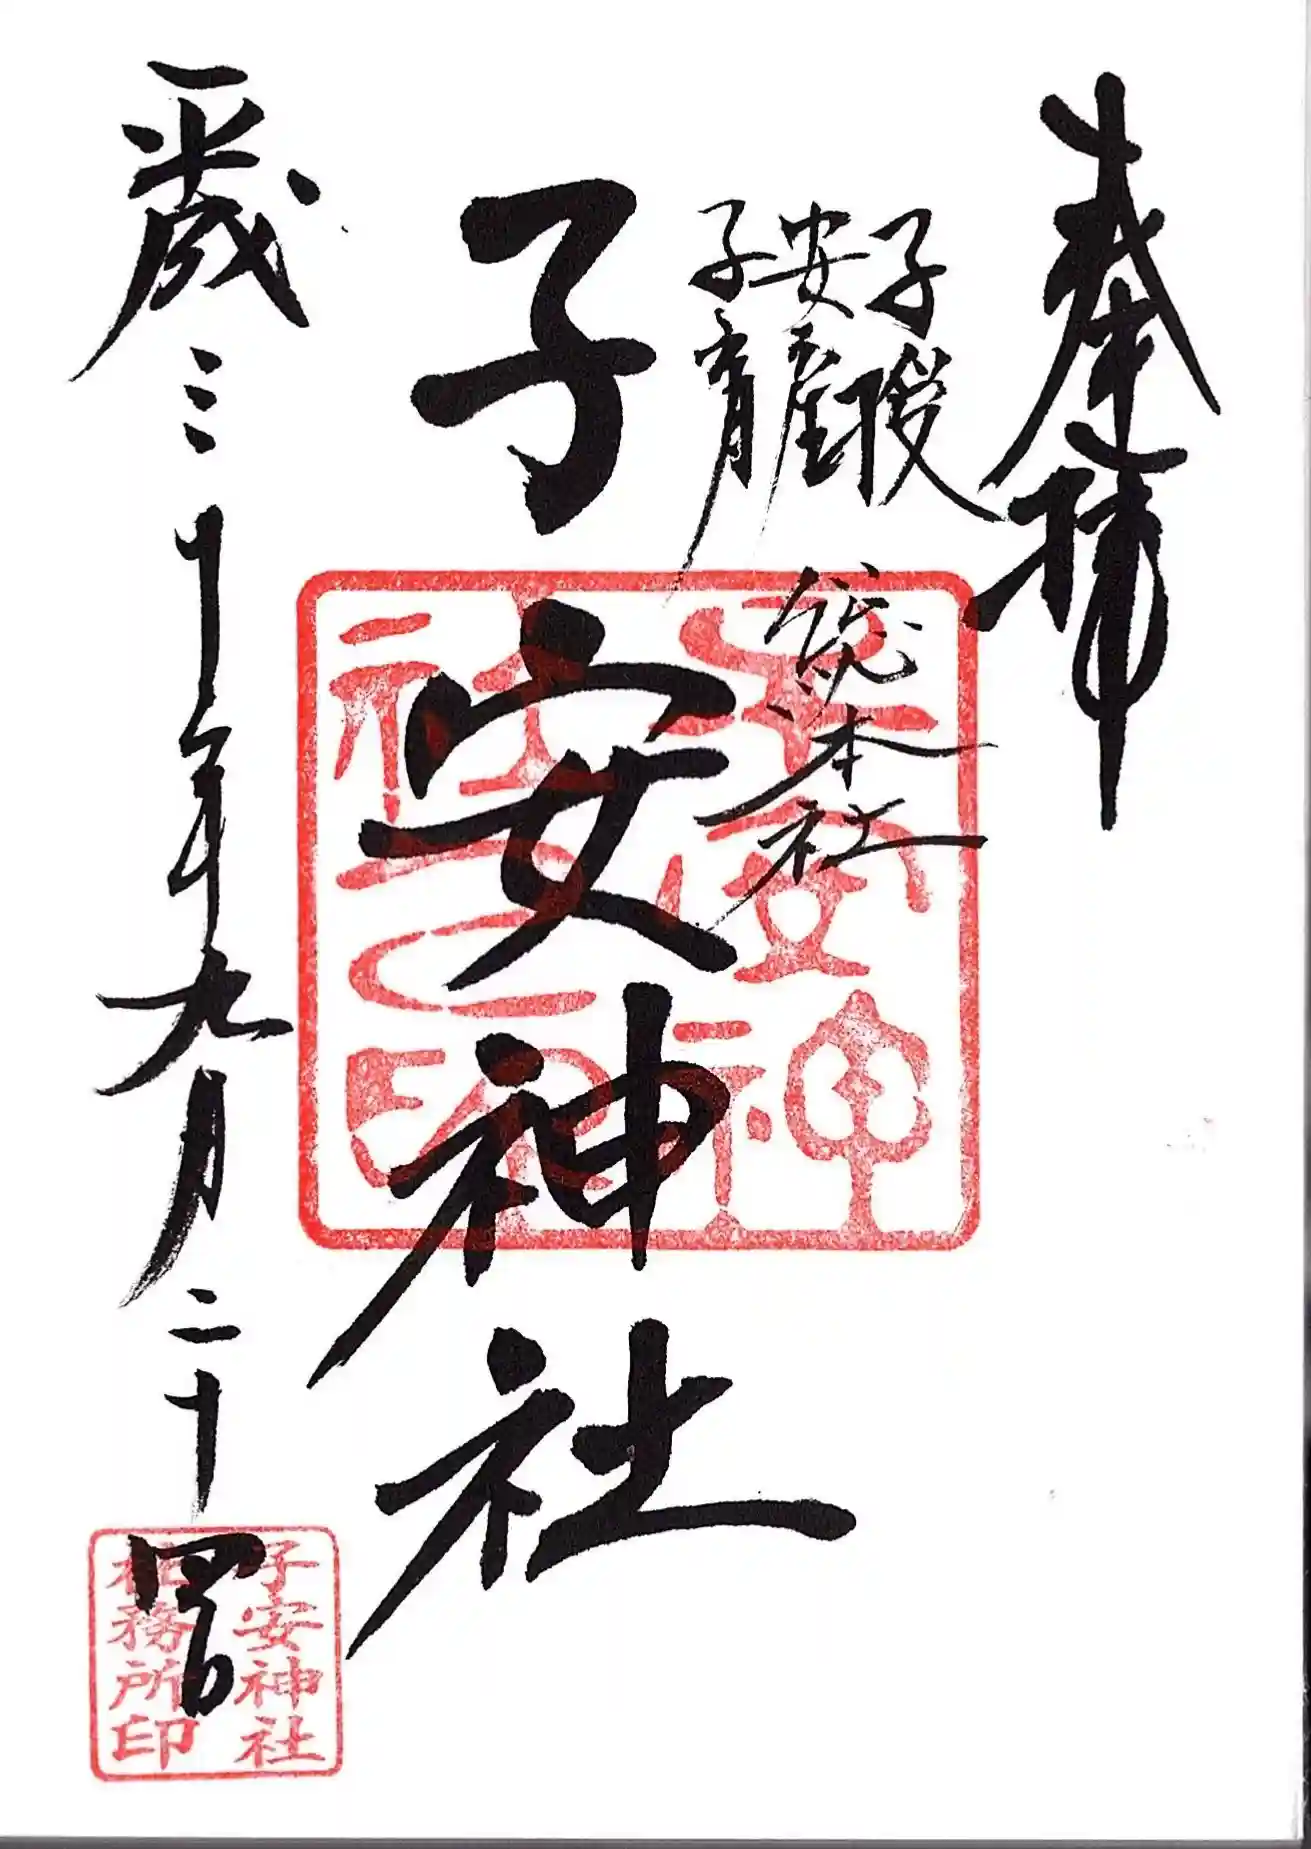 奉拝
子授
安産
子育
総本社
子安神社
平成三十年九月二十四日
子安神
社之印
子安神社
社務所印